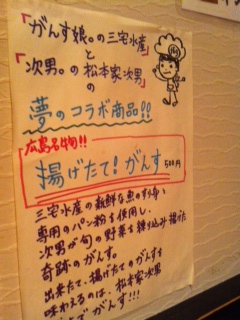 「がんす娘。の三宅水産」
と
「次男。の松本家次男」
の
夢のコラボ商品!!
広島名物!!
揚げたて!がんす 500円
三宅水産の新鮮な魚のすり身に
専用のパン粉を使用し、
次男が旬の野菜を練り込み揚げた
奇跡のがんす。
出来たて、揚げたてのがんすを
味わえるのは、松本家次男
がんす!!!